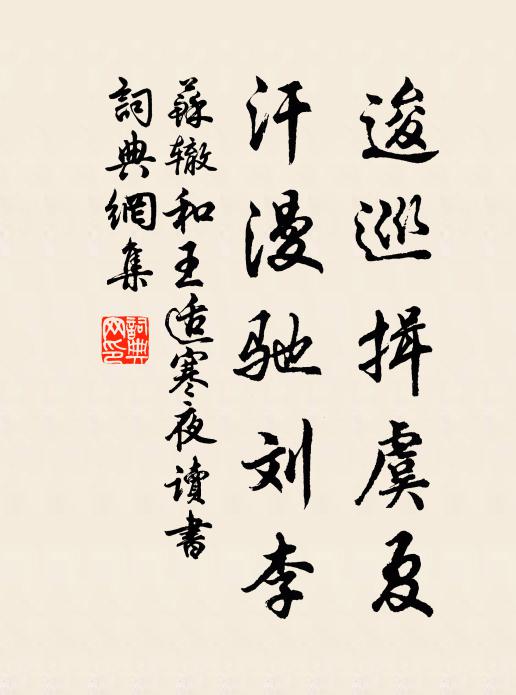 逡巡揖虞夏
汗漫驰刘李
蘇辙和王适寒夜讀書
詞典網集
詞典网印